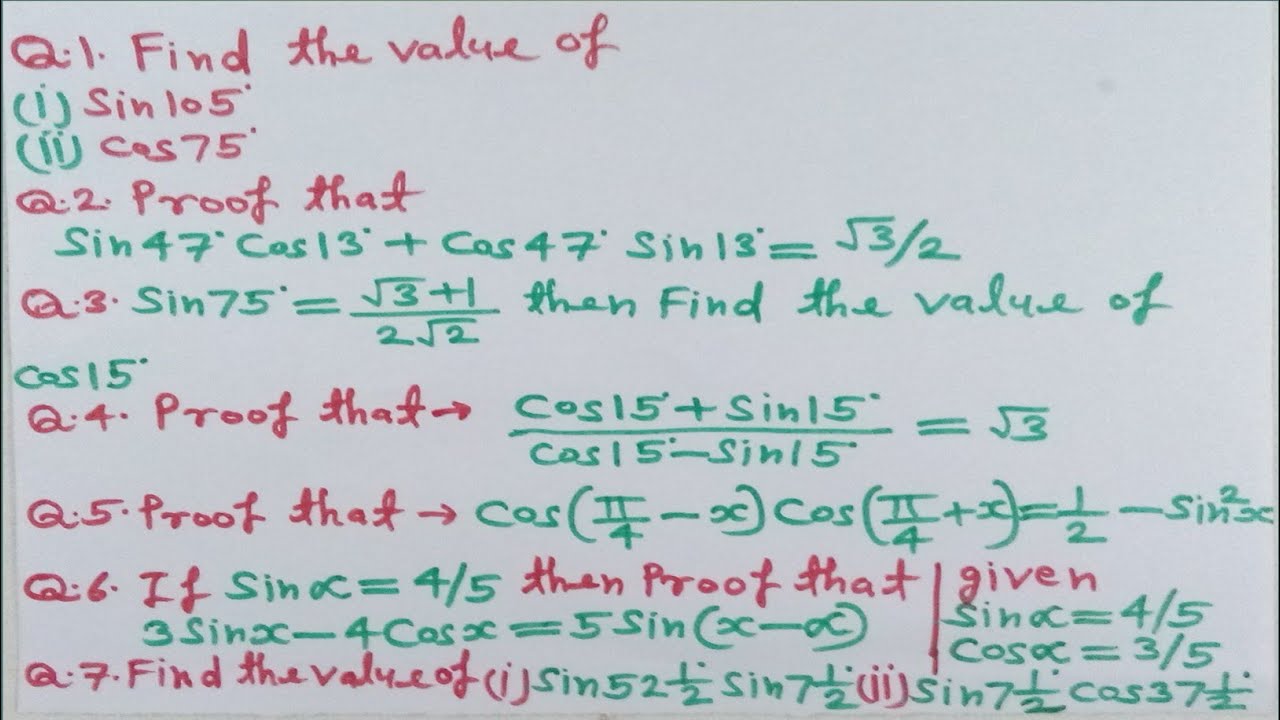 Q.1. Find the value of
(i) Sin105°
(ii) Cos75°
Q.2. Proof that
Sin47° Cos13° + Cos47° Sin13° = √3/2
Q.3. Sin75° = (√3+1)/(2√2) then Find the value of
Cos15°
Q.4. Proof that → (Cos15° + Sin15°)/(Cos15° - Sin15°) = √3
Q.5. Proof that → Cos(π/4 - x) Cos(π/4 + x) = 1/2 - Sin²x
Q.6. If Sinα = 4/5 then Proof that | given
3Sinx - 4Cosx = 5Sin(x-α) | Sinα = 4/5
Cosα = 3/5
Q.7. Find the value of (i) Sin52½° Sin7½° (ii) Sin7½° Cos37½°